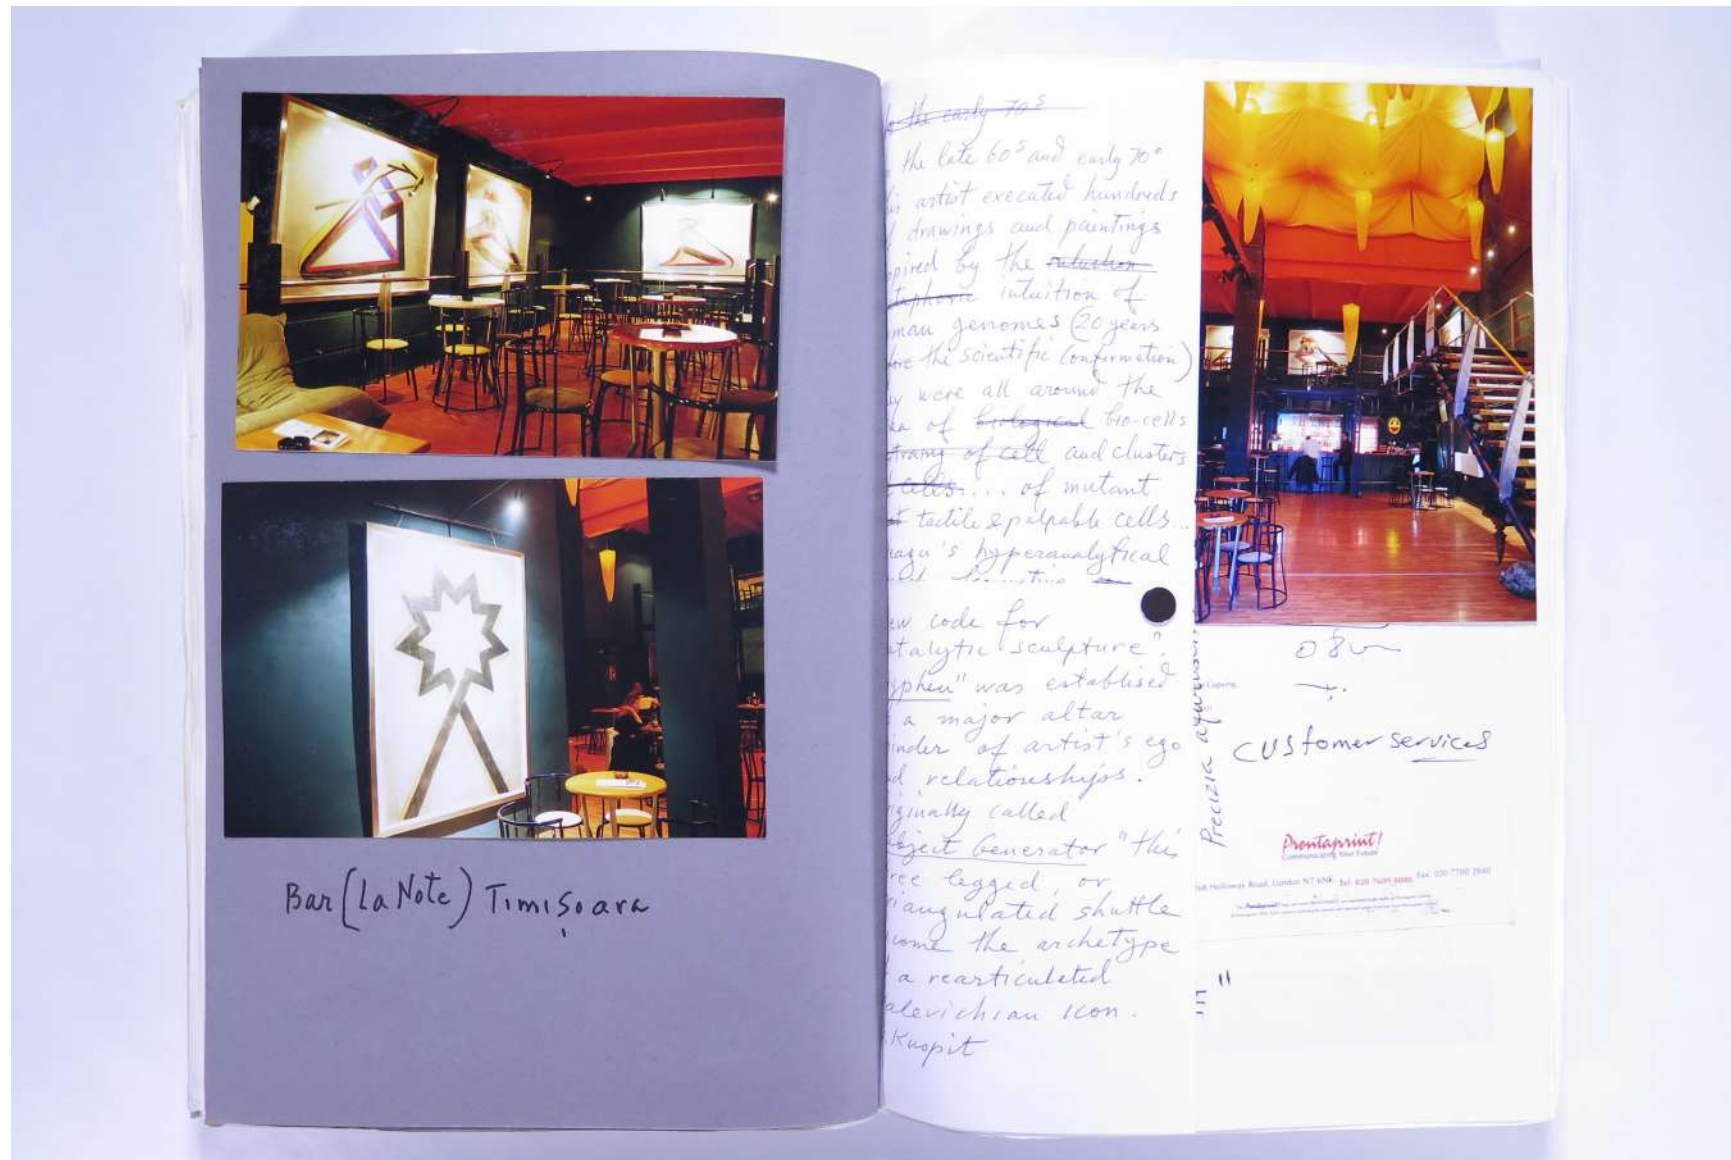 Bar (la Note) Timișoara
the early 70s
the late 60s and early 70s
artist executed hundreds
drawings and paintings
pired by the
intuition of
man genomes (20 years
ore the scientific confirmation)
y were all around the
of biological bio-cells
of cell and clusters
cells.... of mutant
tactile & palpable cells...
eagu's hyperanalytical
ew code for
atalytic sculpture".
yphen" was establised
a major altar
inder of artist's ego
d relationships.
iginally called
bject Generator" this
ree legged, or
riangulated shuttle
come the archetype
a rearticulated
alevichian icon.
Kuspit
Precizia
customer services
Prontaprint!
Communicating Your Future
Holloway Road, London N7 6NR Tel: 020 7609 8080 Fax: 020 7700 2840